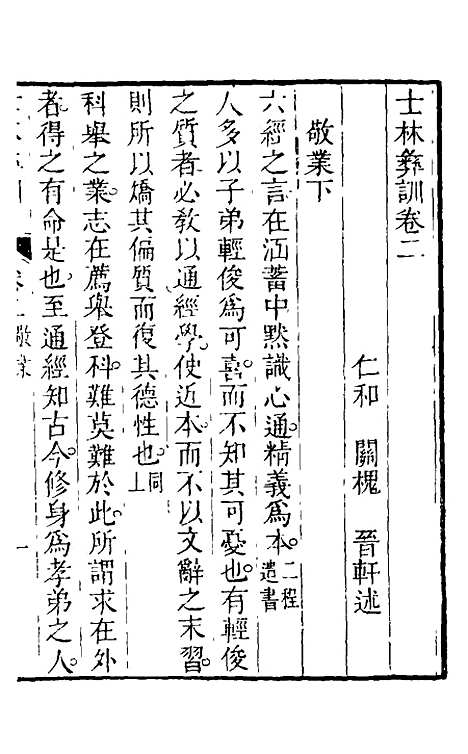 士林彜訓卷二
仁和　關槐　晉軒述
敬業下
六經之言在涵蓄中默識心通精義爲本。二程遺書
人多以子弟輕俊爲可喜。而不知其可憂也。有輕俊
之質者必敎以通經學。使近本。而不以文辭之末習。
則所以矯其偏質而復其德性也。同上
科舉之業。志在薦舉登科。難莫難於此。所謂求在外
者得之有命是也。至通經知古今。修身爲孝弟之人。
敬業
一